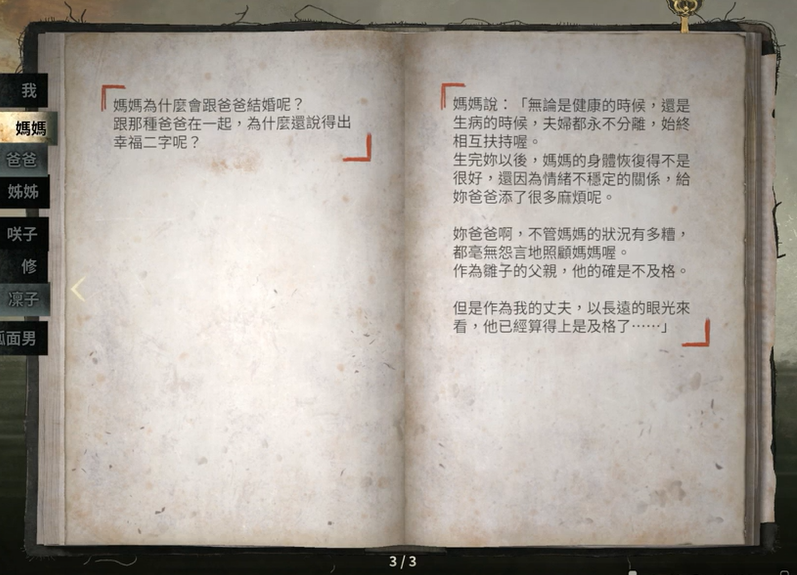 我
媽媽
爸爸
姊姊
咲子
修
凜子
狐面男
媽媽為什麼會跟爸爸結婚呢？
跟那種爸爸在一起，為什麼還說得出
幸福二字呢？
媽媽說：「無論是健康的時候，還是
生病的時候，夫婦都永不分離，始終
相互扶持喔。
生完妳以後，媽媽的身體恢復得不是
很好，還因為情緒不穩定的關係，給
妳爸爸添了很多麻煩呢。
妳爸爸啊，不管媽媽的狀況有多糟，
都毫無怨言地照顧媽媽喔。
作為雛子的父親，他的確是不及格。
但是作為我的丈夫，以長遠的眼光來
看，他已經算得上是及格了⋯⋯」
3/3